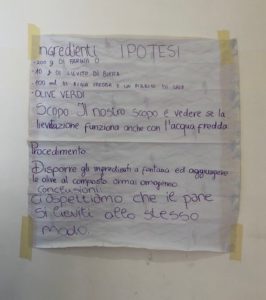 Ingredienti IPOTESI
-200 g DI FARINA 0
-10 g DI LIEVITO DI BIRRA
-100 ml DI ACQUA FREDDA E UN PIZZICO DI SALE
-OLIVE VERDI
Scopo Il nostro scopo è vedere se la
lievitazione funziona anche con l'acqua fredda
Procedimento
Disporre gli ingredienti a fontana ed aggiungere
le olive al composto ormai omogeneo
conclusioni
ci aspettiamo che il pane
si lieviti allo stesso
modo.